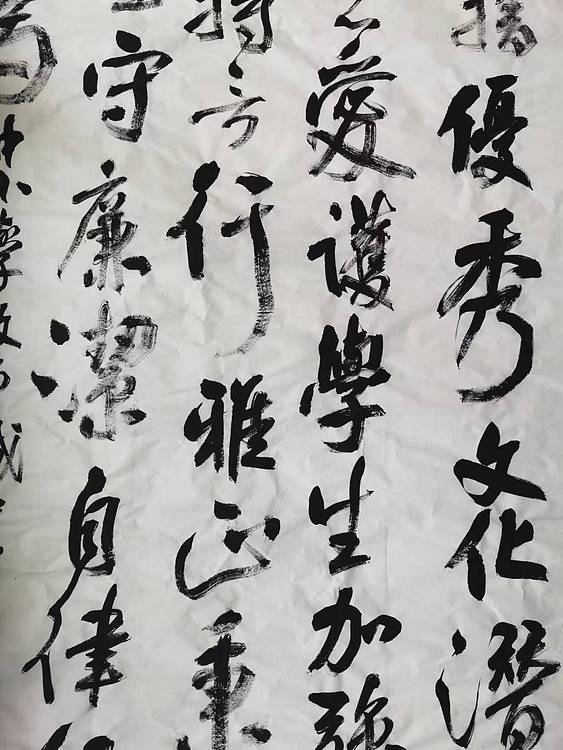 播優秀文化潛
愛護學生加強
持言行雅正秉
守廉潔自律
中小學教